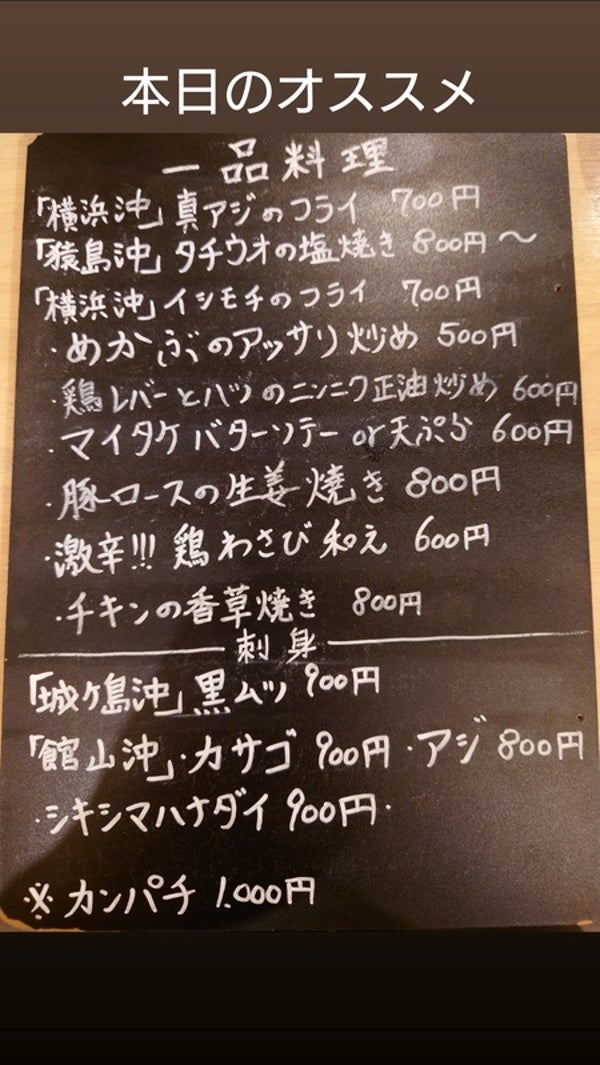 本日のオススメ
一品料理
「横浜沖」真アジのフライ 700円
「猿島沖」タチウオの塩焼き 800円〜
「横浜沖」イシモチのフライ 700円
・めかぶのアッサリ炒め 500円
・鶏レバーとハツのニンニク正油炒め 600円
・マイタケバターソテーor天ぷら 600円
・豚ロースの生姜焼き 800円
・激辛!!! 鶏わさび和え 600円
・チキンの香草焼き 800円
刺身
「城ヶ島沖」黒ムツ 900円
「館山沖」・カサゴ 900円・アジ 800円
・シキシマハナダイ 900円・
※カンパチ 1.000円